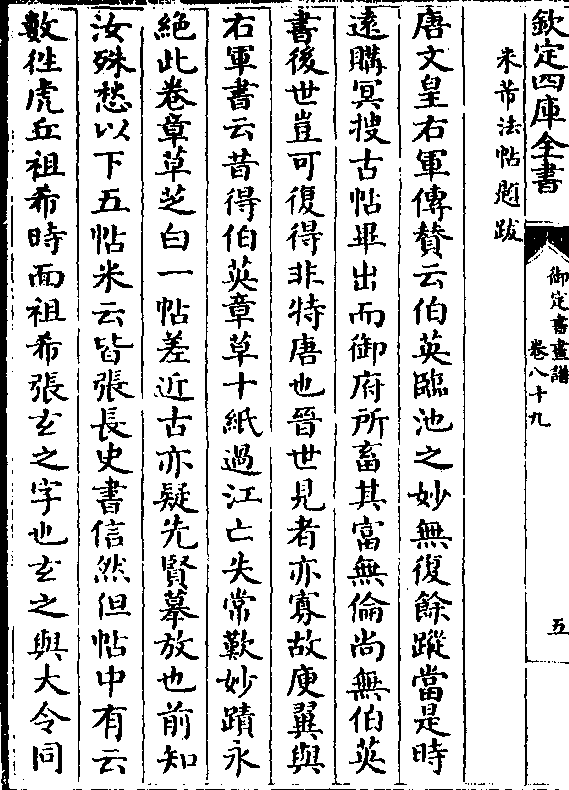 欽定四庫全書
御定書畫譜
卷八十九
五
米芾法帖題跋
唐文皇右軍傳贊云伯英臨池之妙無復餘蹤當是時
遠購冥搜古帖畢出而御府所畜其富無倫尚無伯英
書後世豈可復得非特唐也晉世見者亦寡故庾翼與
右軍書云昔得伯英章草十紙過江亡失常歎妙蹟永
絕此卷章草芝白一帖差近古亦疑先賢摹放也前知
汝殊愁以下五帖米云皆張長史書信然但帖中有云
數徃虎丘祖希時面祖希張玄之字也玄之與大令同